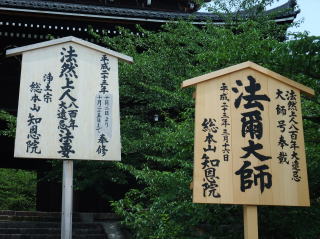 平成二十三年
奉修
法然上人八百年大遠忌法要
浄土宗
総本山 知恩院
法然上人八百年大遠忌
大師号奉戴
法爾大師
平成二十三年三月十六日
総本山 知恩院